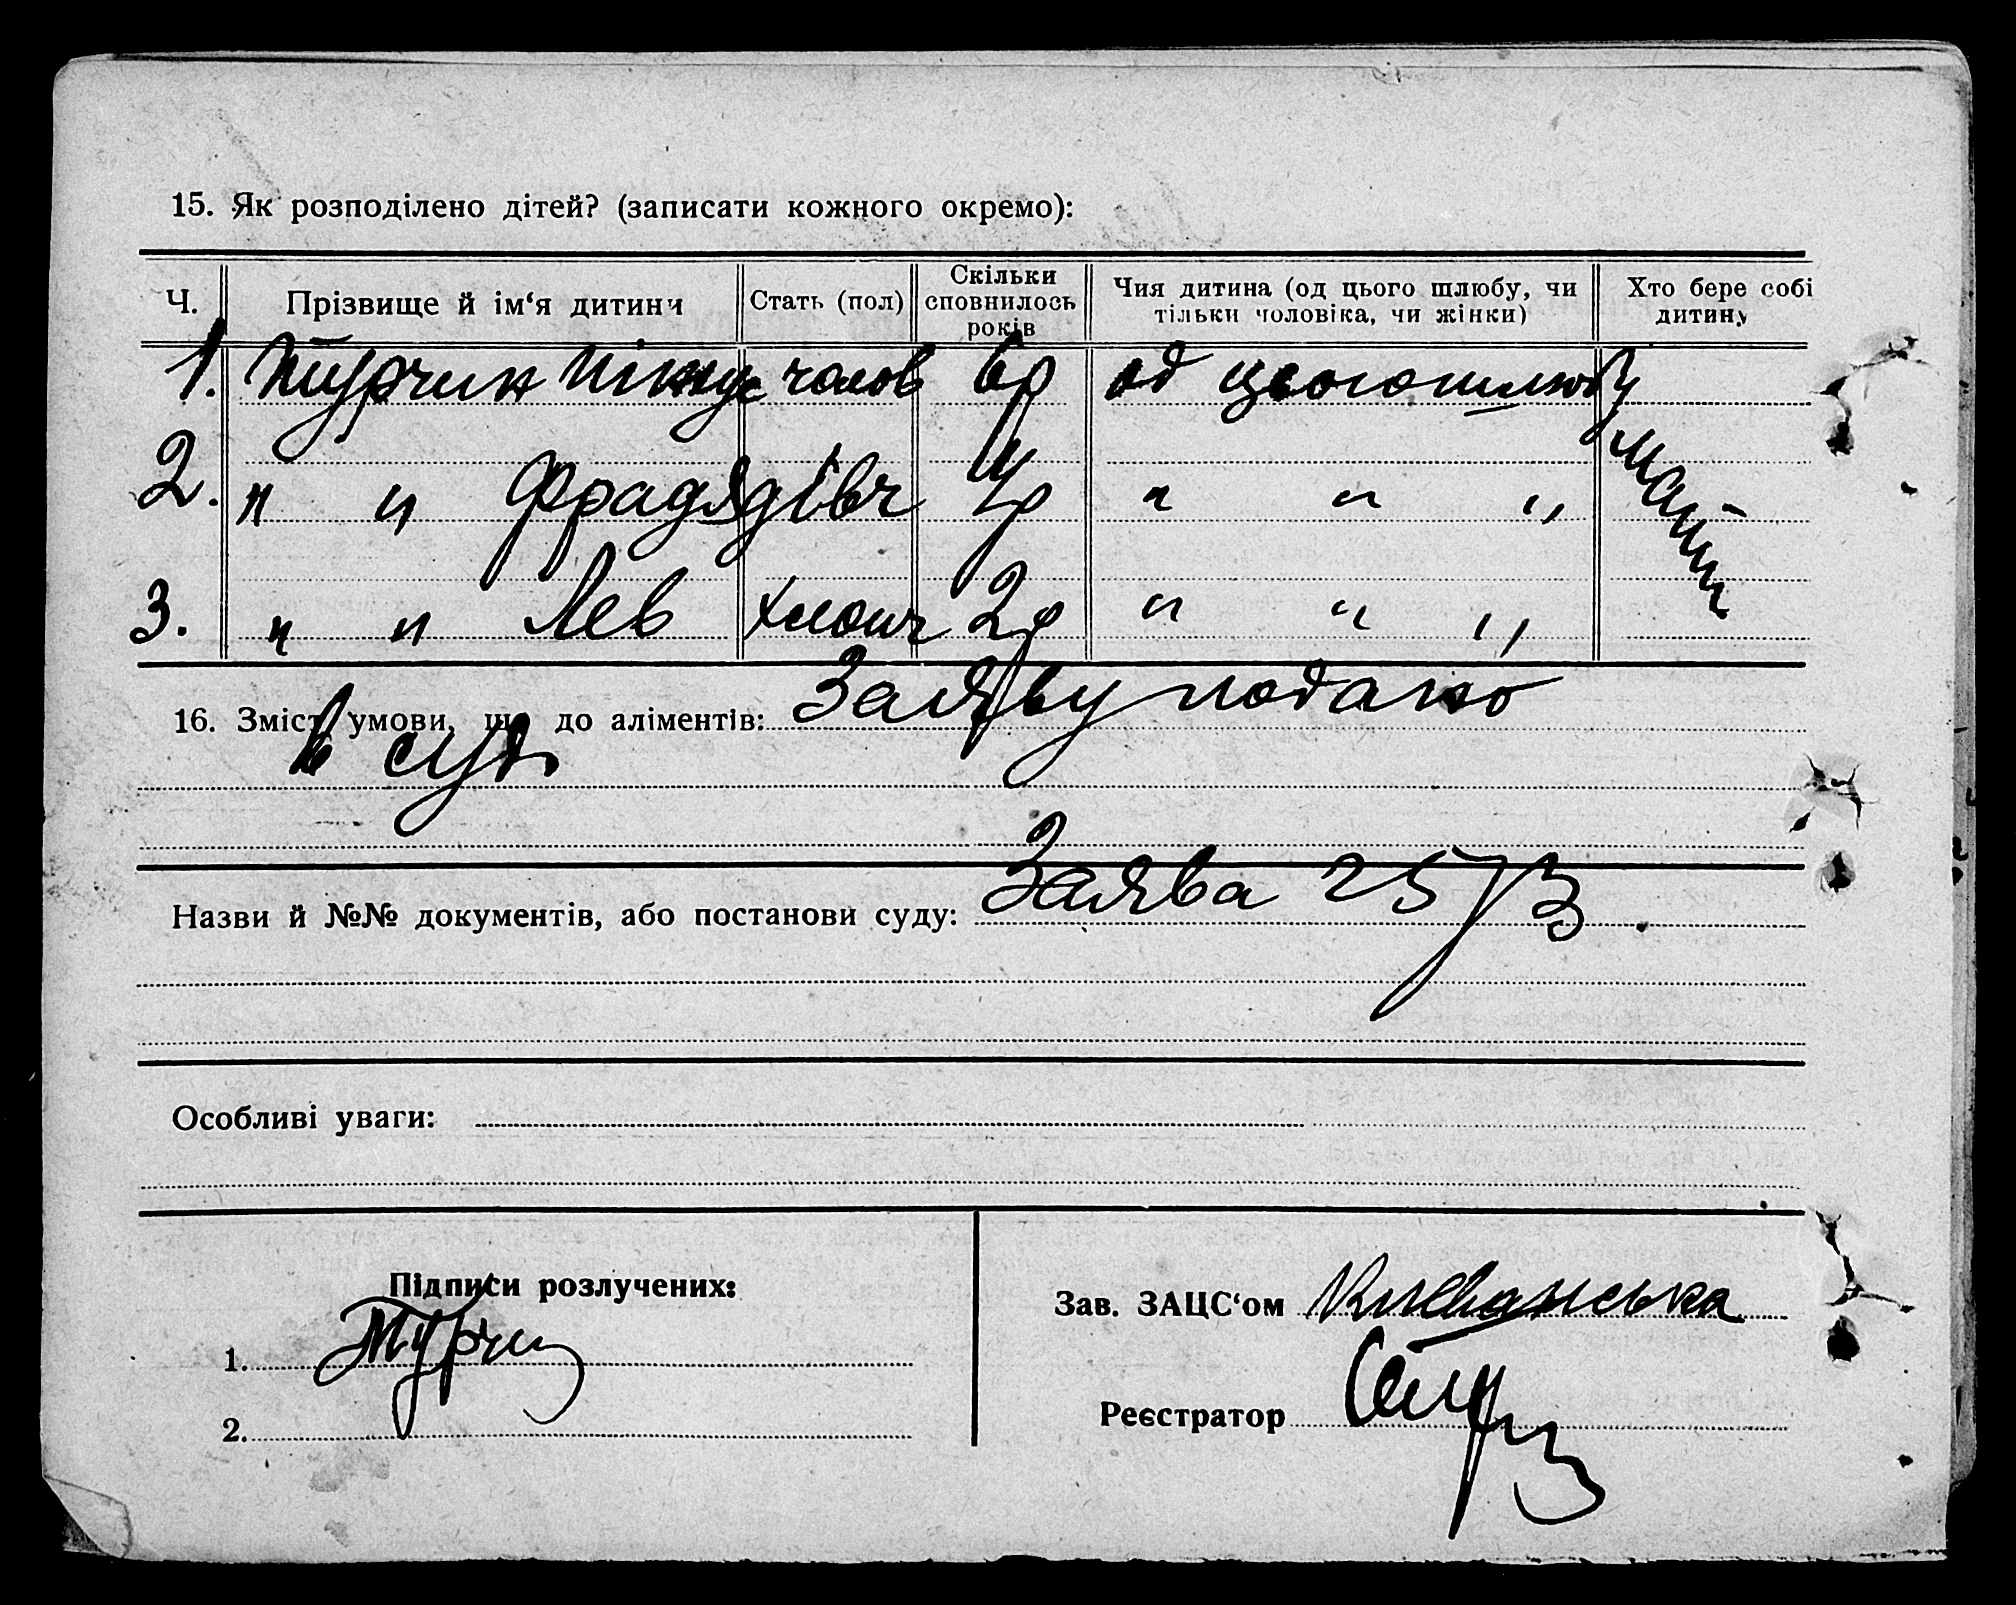 15. Як розподілено дітей? (записати кожного окремо):
Ч. Прізвище й ім‘я дитини Стать (пол) Скільки сповнилось років Чия дитина (од цього шлюбу, чи тільки чоловіка, чи жінки) Хто бере собі дитину
1. Турчин Пінкус чолов 6р од цього шлюбу
мати
2. " " Фрадя дівч 4р " " "
3. " " Лев хлопч 2р " " "
16. Зміст умови, що до аліментів: Заяву подано
в суд
Назви й №№ документів, або постанови суду: Заява 25/3
Особливі уваги:
Підписи розлучених:
1. Турчин
2.
Зав. ЗАЦС‘ом
Реєстратор